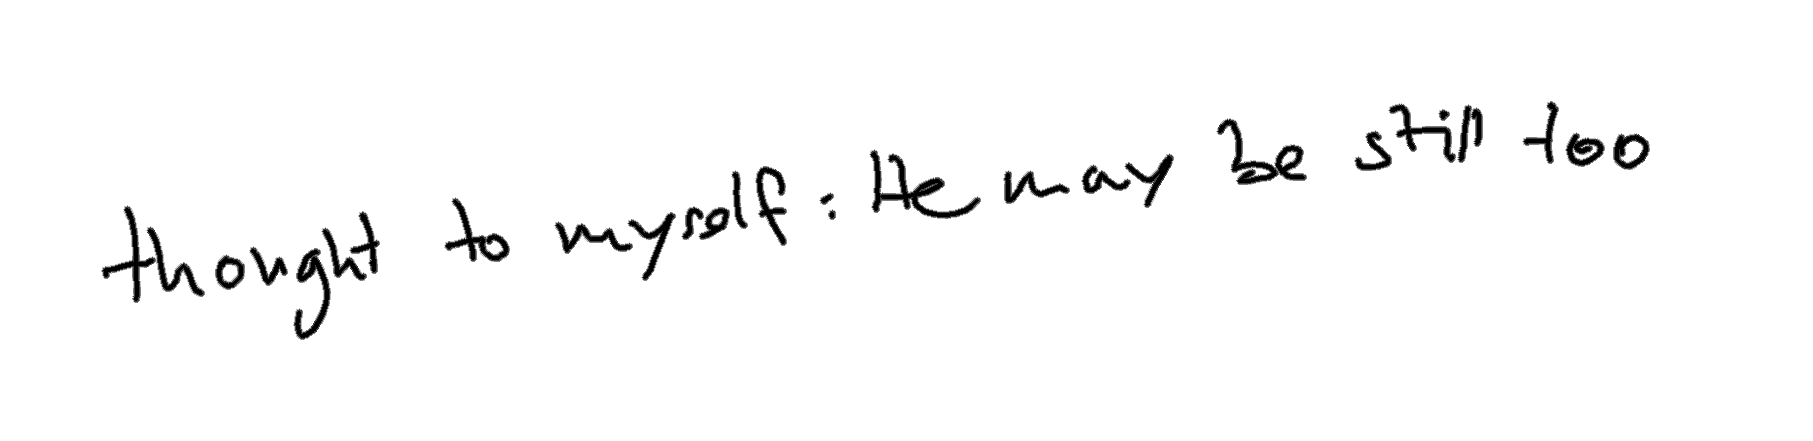 thought to myself: He may be still too